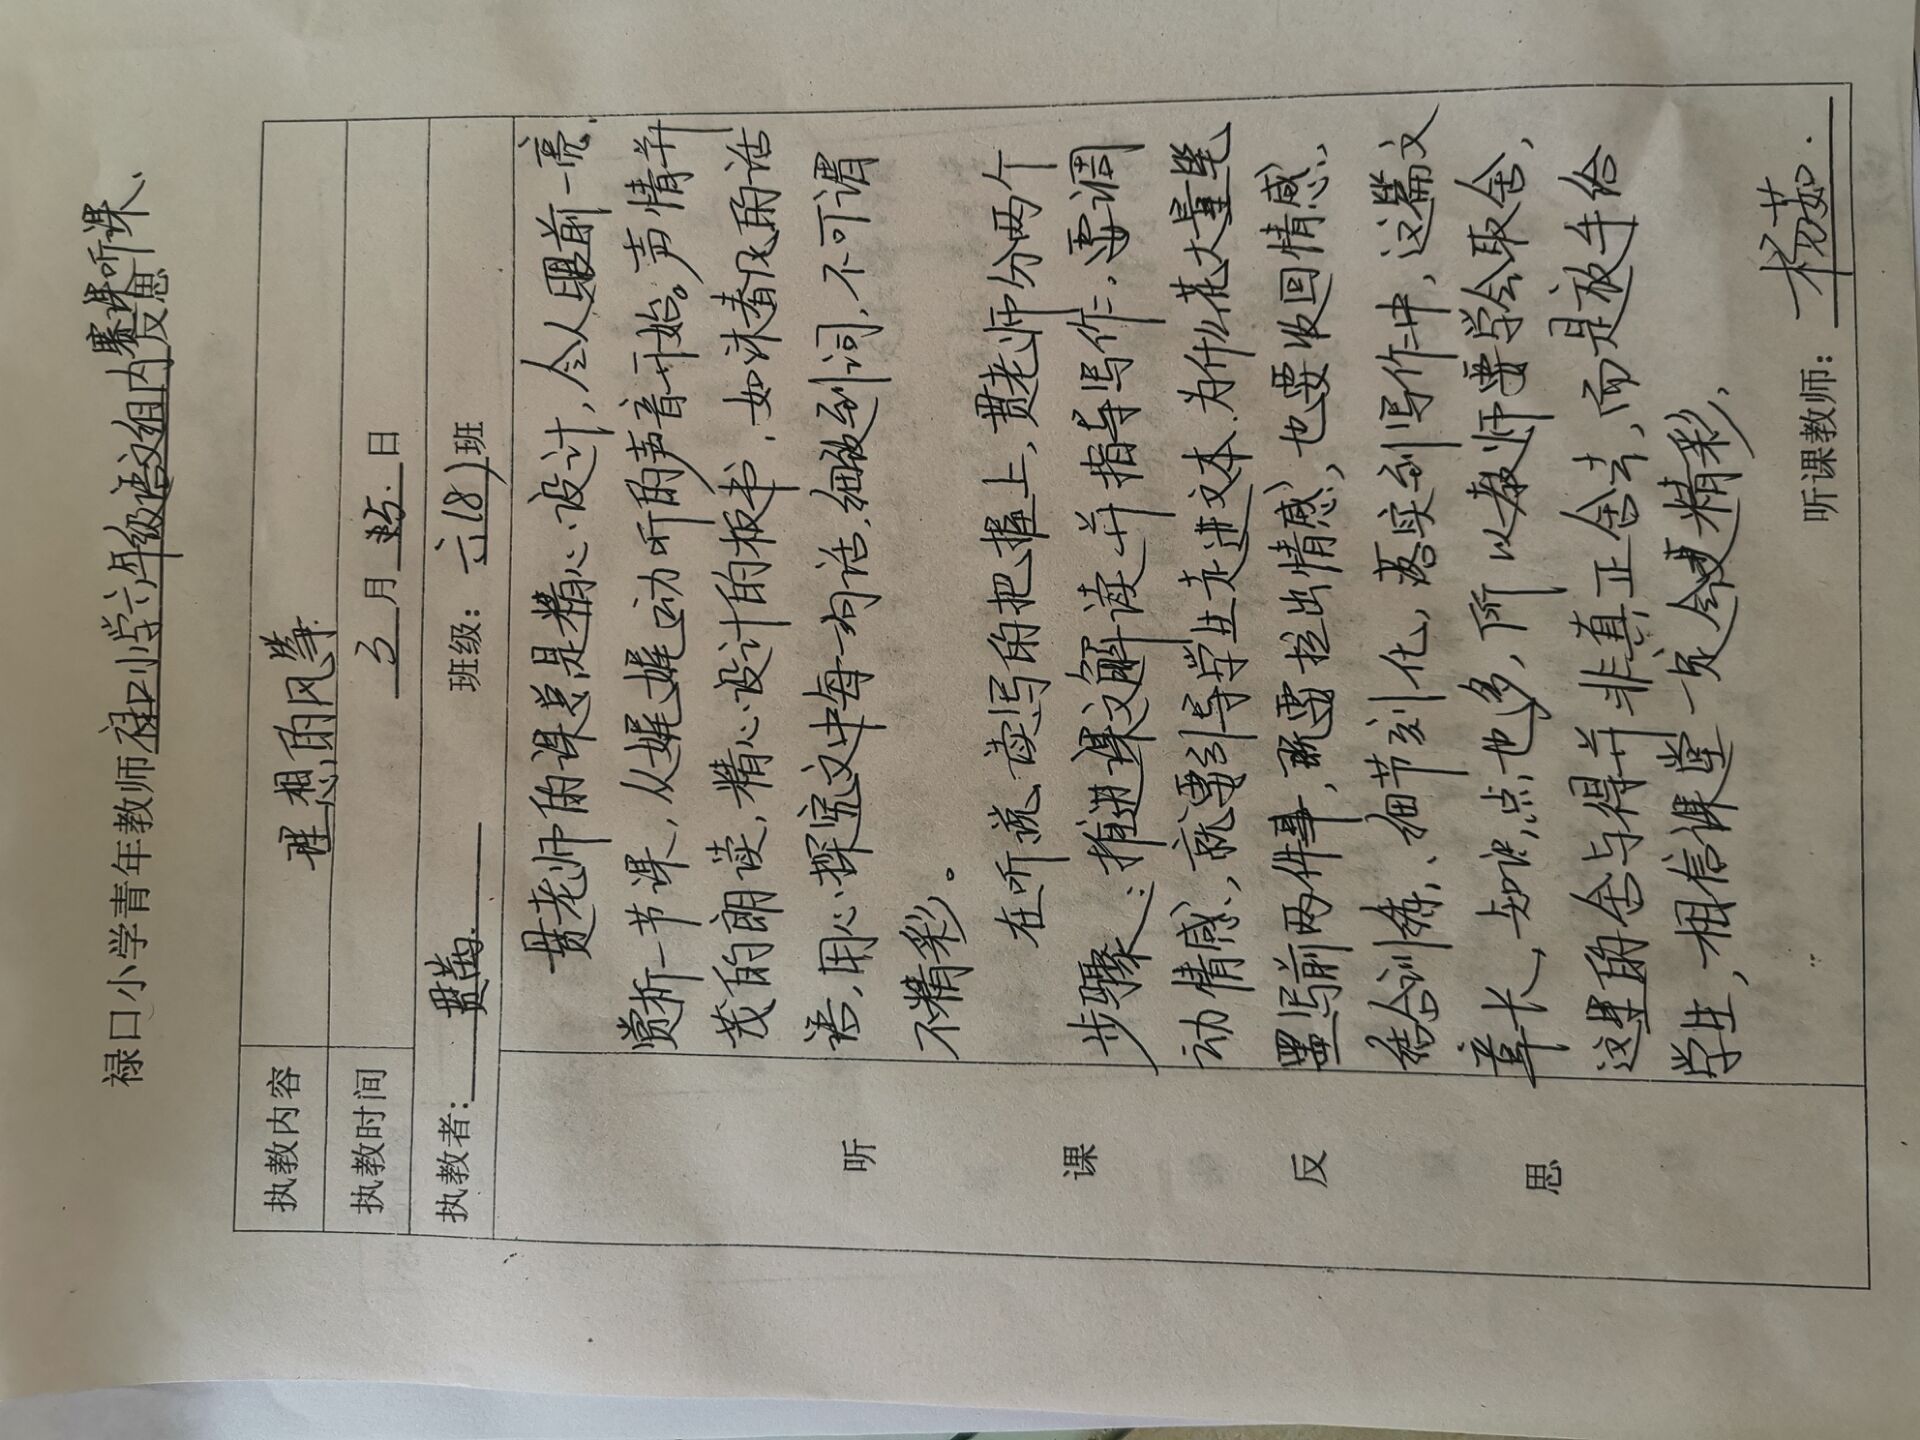 禄口小学青年教师禄口小学六年级语文组内赛课听课反思
执教内容 理想的风筝
执教时间 3月 日
执教者：贯茜 班级：六（8）班
听课反思
贯老师的课总是精心设计，令人眼前一亮.
赏析一节课，从娓娓动听的声音开始。声情并
茂的朗读，精心设计的板书，如沐春风的话
语，用心探究文中每一句话，细致到词，不可谓
不精彩。
在听说读写的把握上，贯老师分两个
步骤：推进课文解读并指导写作，要调
动情感，就要引导学生走进文本.为什么花大量笔
墨写前两件事，既要拉出情感，也要收回情感、
结合训练、细节刻化，落实到写作中，这篇文
章长，知识点也多，所以教师要学会取舍，
这里的舍与得并非真正舍去，而是放手给
学生，相信课堂一定会更精彩.
听课教师：杨茹.